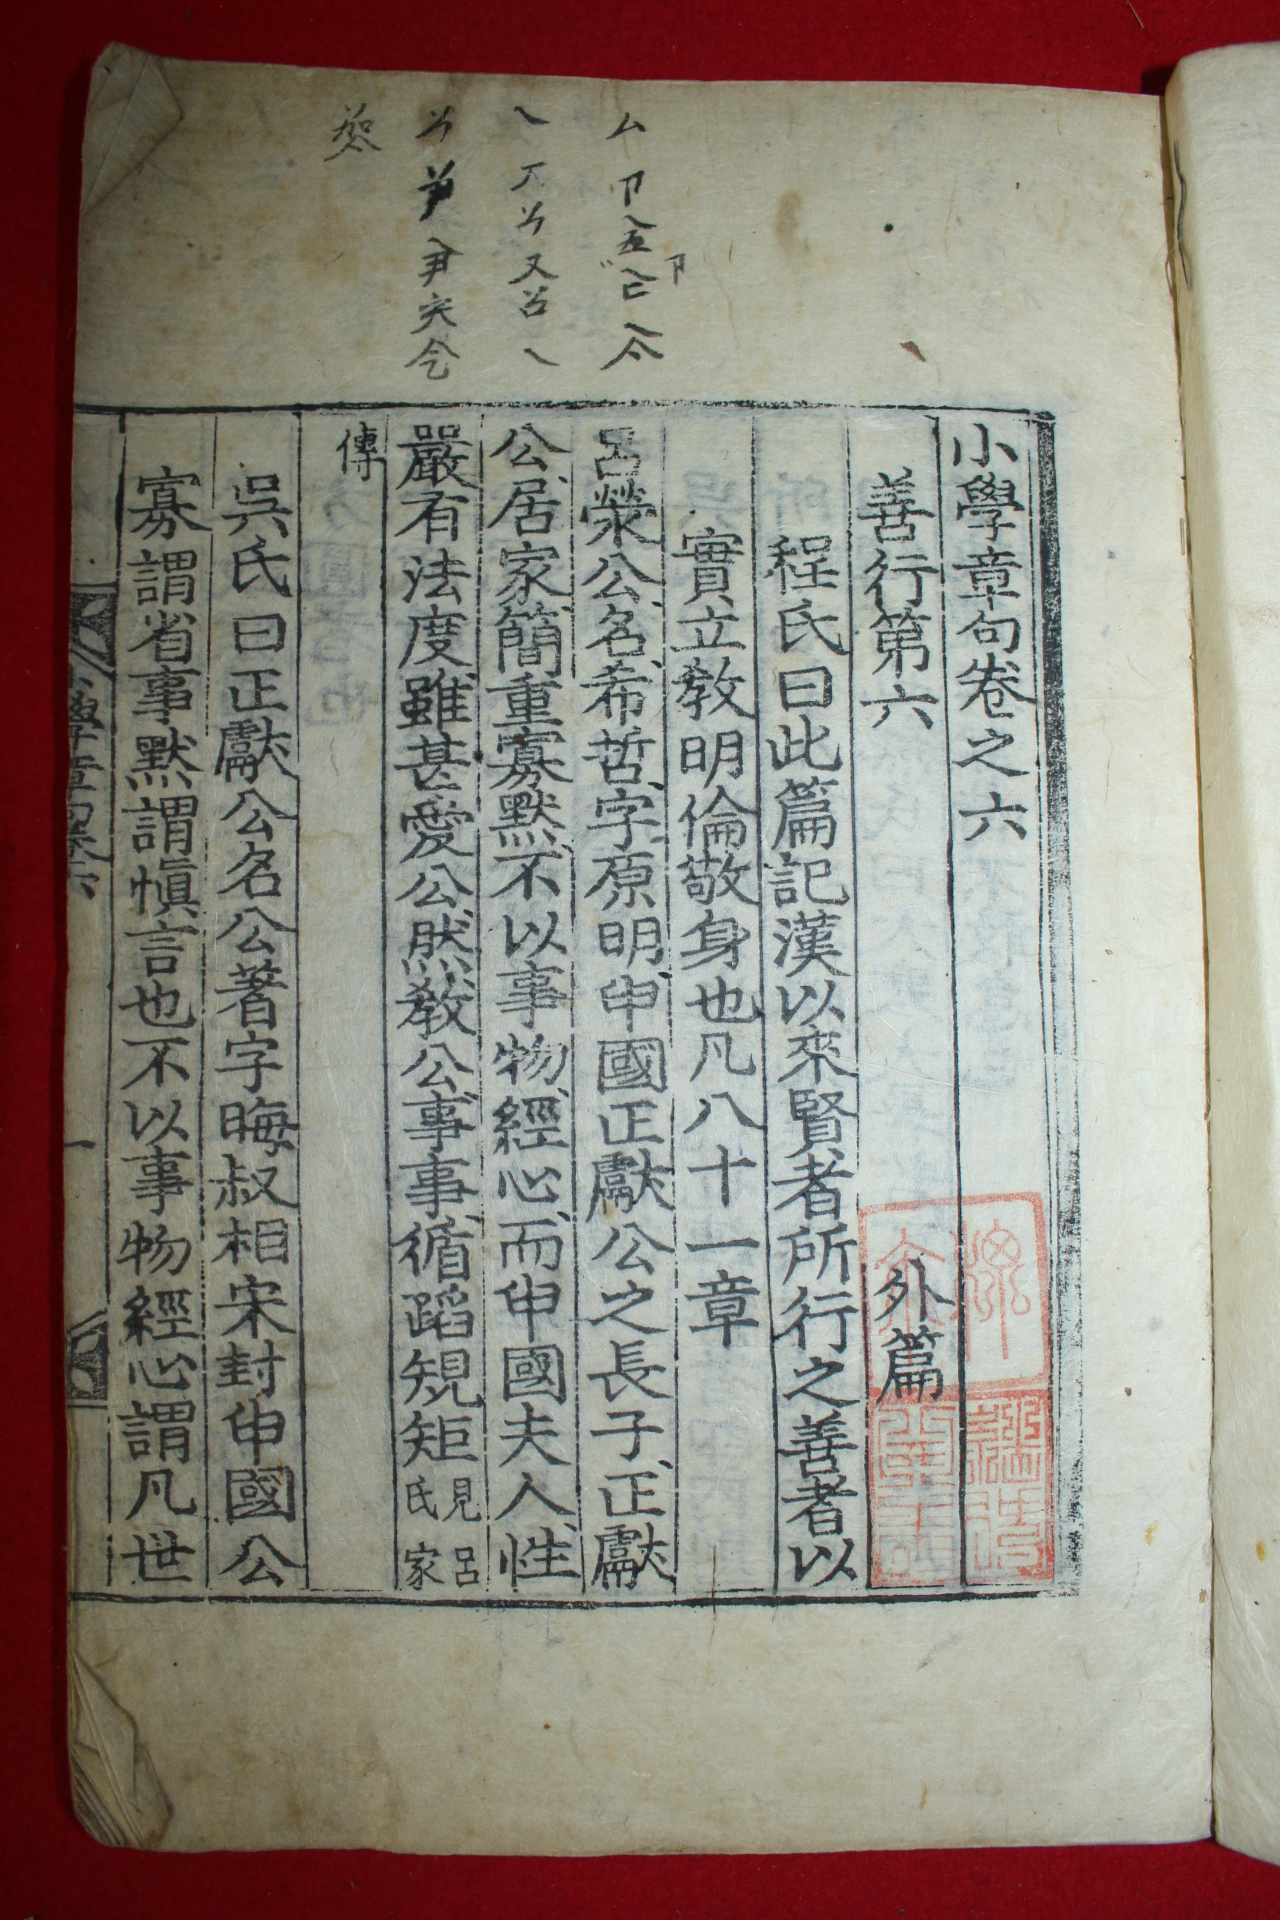 小學章句卷之六
善行第六 外篇
程氏曰此篇記漢以來賢者所行之善者以
實立教明倫敬身也凡八十一章
呂滎公名希哲字原明申國正獻公之長子正獻
公居家簡重寡默不以事物經心而申國夫人性
嚴有法度雖甚愛公然教公事事循蹈規矩見呂氏家
傳
吳氏曰正獻公名公著字晦叔相宋封申國公
寡謂省事默謂愼言也不以事物經心謂凡世